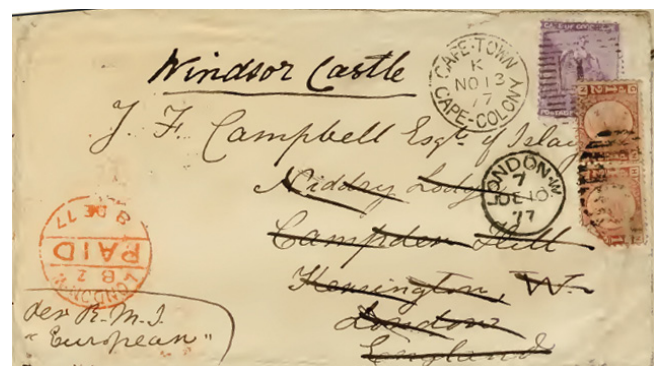 Windsor Castle
CAPE-TOWN
K
NO 13
77
CAPE-COLONY
J. F. Campbell Esqr. of Islay
Niddry Lodge
LONDON·W
7
DE 10
77
Campden Hill
Kensington, W.
London
England
LONDON
8 Z
PAID
8 DE 77
per R.M.S.
"European"